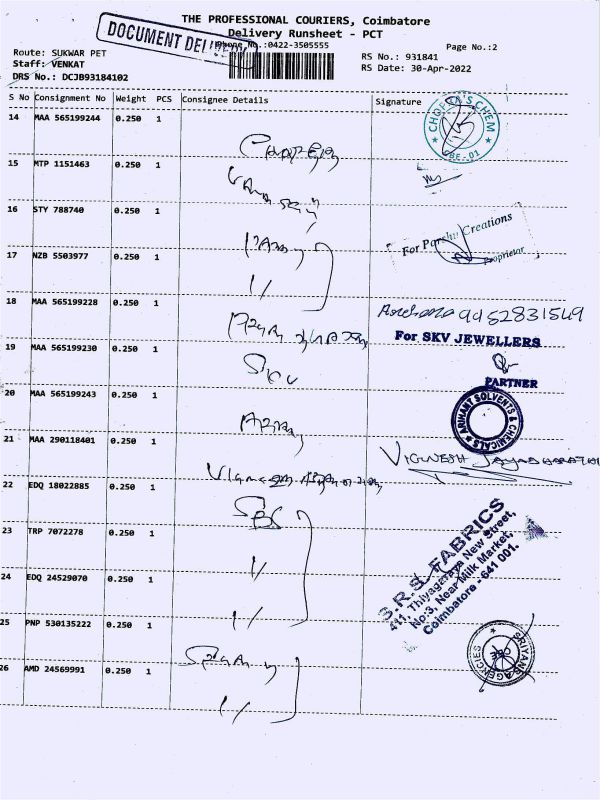 THE PROFESSIONAL COURIERS, Coimbatore
Delivery Runsheet - PCT
DOCUMENT DELIVERY
Phone No.:0422-3505555
Page No.:2
Route: SUKWAR PET
RS No.: 931841
Staff: VENKAT
RS Date: 30-Apr-2022
DRS No.: DCJB93184102
S No Consignment No Weight PCS Consignee Details Signature
14 MAA 565199244 0.250 1
CHOPRA'S CHEM
CBE - 01
15 MTP 1151463 0.250 1
16 STY 788740 0.250 1
For Parshv Creations
Proprietor
17 NZB 5503977 0.250 1
18 MAA 565199228 0.250 1
Archana 9952831549
19 MAA 565199230 0.250 1
SKV
For SKV JEWELLERS
PARTNER
20 MAA 565199243 0.250 1
ARIHANT SOLVENTS & CHEMICALS
21 MAA 290118401 0.250 1
VIGNESH JAYABHARATHI
22 EDQ 18022885 0.250 1
SBS
23 TRP 7072278 0.250 1
S.R.S FABRICS
411, Thiyagaraya New Street,
No:3, Near Milk Market,
Coimbatore - 641 001.
24 EDQ 24529070 0.250 1
25 PNP 530135222 0.250 1
SRIYANS AGENCIES
CBE
26 AMD 24569991 0.250 1